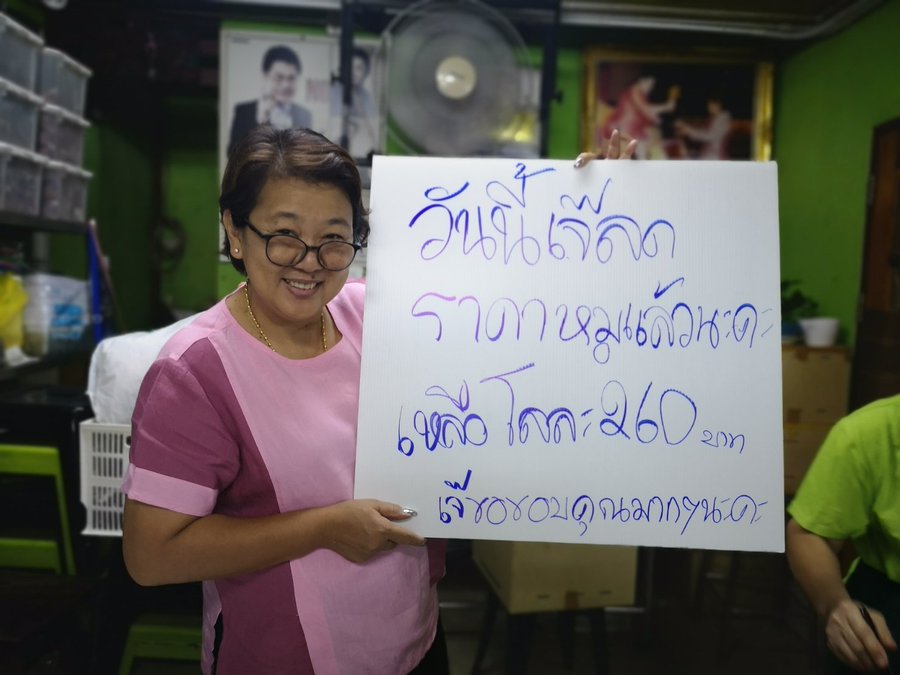 วันนี้เจ๊ลด
ราคาหมูแล้วนะคะ
เหลือโลละ 260 บาท
เจ๊ขอขอบคุณมากๆนะคะ